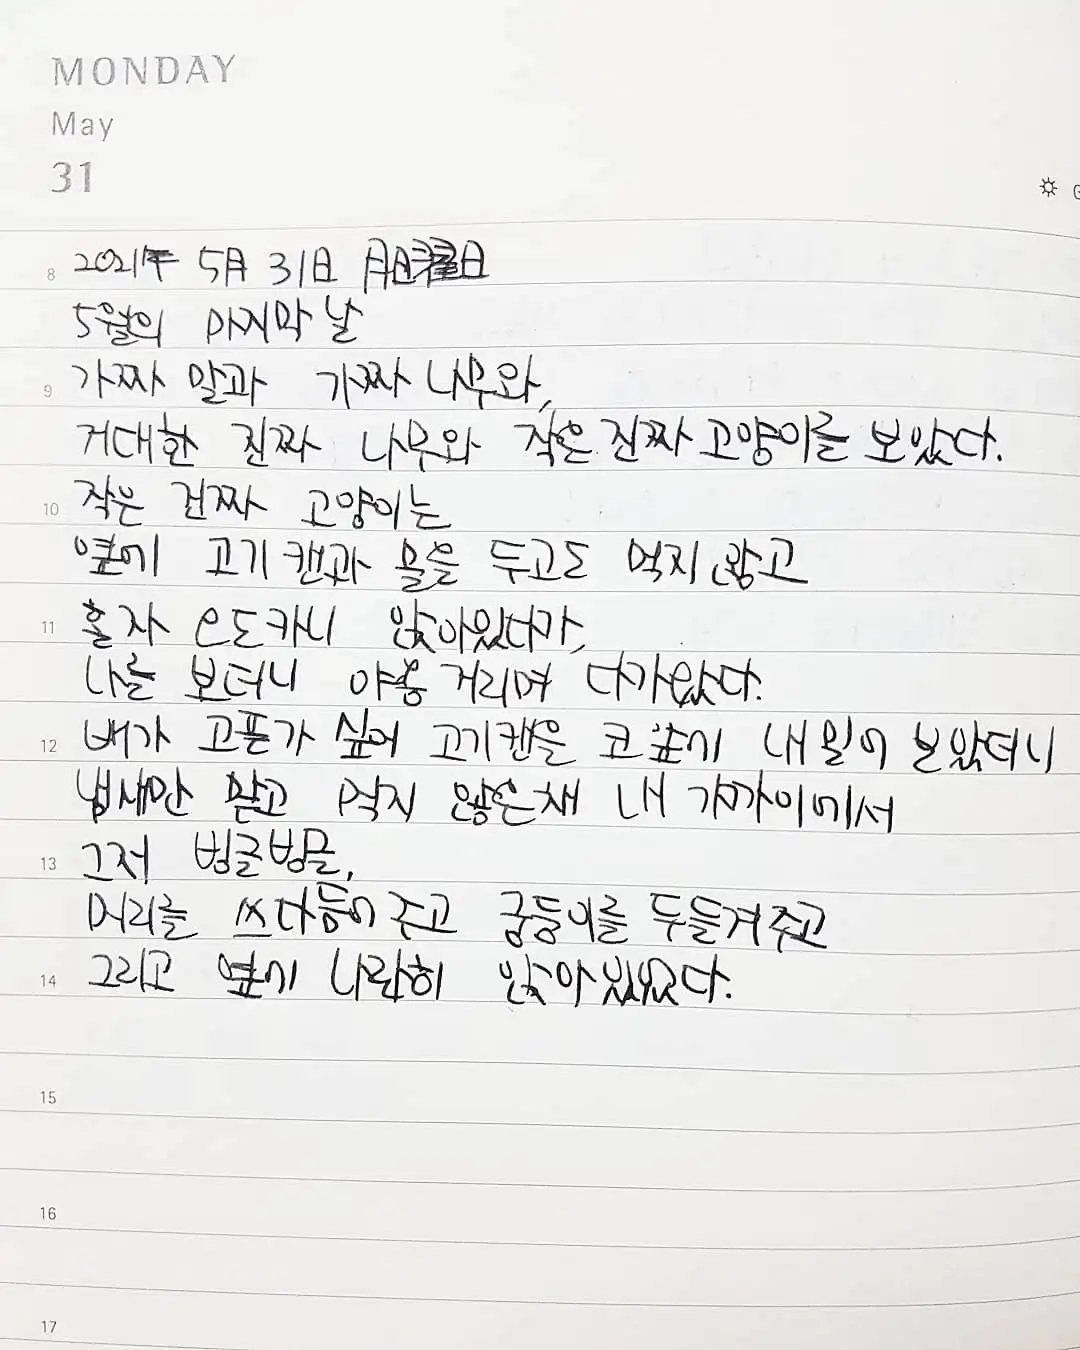 MONDAY
May
31
8 2021年 5月 31日 月曜日
5월의 마지막 날
9 가짜 말과 가짜 나무와,
거대한 진짜 나무와 작은 진짜 고양이를 보았다.
10 작은 진짜 고양이는
옆에 고기캔과 물을 두고도 먹지 않고
11 홀자 으도카니 앉아있다가,
나를 보더니 야옹 거리며 다가왔다.
12 배가 고픈가 싶어 고기캔을 코 앞에 내밀어 보았더니
냄새만 맡고 먹지 않은채 내 가까이에서
13 그저 빙글빙글,
머리를 쓰다듬어 주고 궁둥이를 두들겨주고
14 그리고 옆에 나란히 앉아있었다.
15
16
17